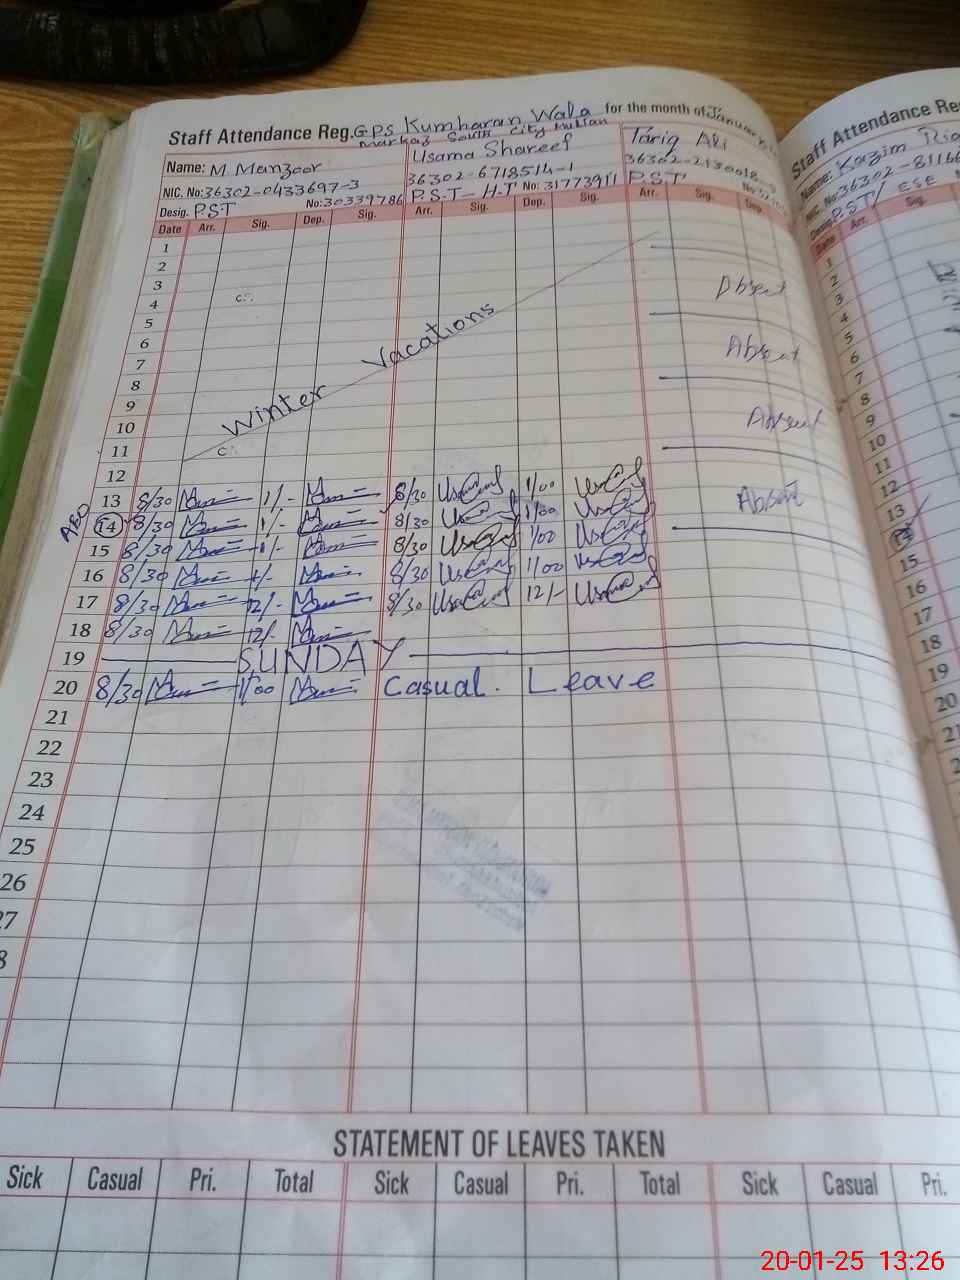 Staff Attendance Reg. GPS Kumharan Wala for the month of January
Markaz South City Multan
Name: M Manzoor Usama Shareef Tariq Ali
NIC. No: 36302-0433697-3 36302-6718514-1 36302-2130018-
Desig. P.S.T No: 30339786 P.S.T - H.T No: 31773911 P.S.T
Date Arr. Sig. Dep. Sig. Arr. Sig. Dep. Sig. Arr. Sig. Dep.
1
2
3 Absent
4
5
6 Absent
7
8
9
10 Absent
11
Winter Vacations
12
13 8/30 1/- 8/30 1/00 Absent
AEO 14 8/30 1/- 8/30 1/00
15 8/30 1/- 8/30 1/00
16 8/30 1/- 8/30 1/00
17 8/30 12/- 8/30 12/-
18 8/30 12/-
19 SUNDAY
20 8/30 1/00 Casual Leave
21
22
23
24
25
26
27
8
STATEMENT OF LEAVES TAKEN
Sick Casual Pri. Total Sick Casual Pri. Total Sick Casual Pri.
Staff Attendance Re
Name: Kazim Ria
NIC. No: 36302-8116
Desig. P.ST/ ESE
Date Arr. Sig.
1
2
3
4
5
6
7
8
9
10
11
12
13
14
15
16
17
18
19
20
21
2
20-01-25 13:26